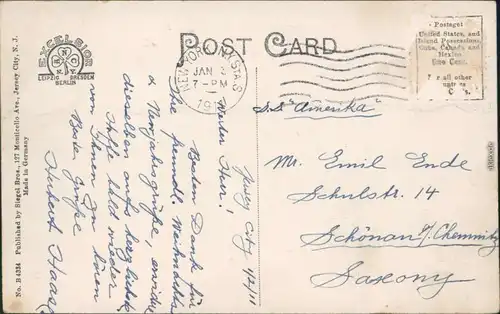 POST CARD
EXCELSIOR
LEIPZIG DRESDEN
BERLIN
No. B 4334 Published by Siegel Bros., 127 Monticello Ave., Jersey City, N. J.
Made in Germany
Postage!
United States, and
Island Possessions,
Cuba, Canada, and
Mexico.
One Cent.
For all other
NEW YORK
STA. S
JAN
7-PM
S.S. "Amerika"
Mr. Emil Ende
Schulstr. 14
Schönau i/. Chemnitz
Saxony
Jersey City 1/2/11
Werter Herr!
Besten Dank für
Ihre freundl. Weihnachts
& Neujahrsgrüße, erwidre
dieselben aufs herzlichste
Hoffe bald wieder
von Ihnen zu hören
Beste Grüße
Hubert Haase